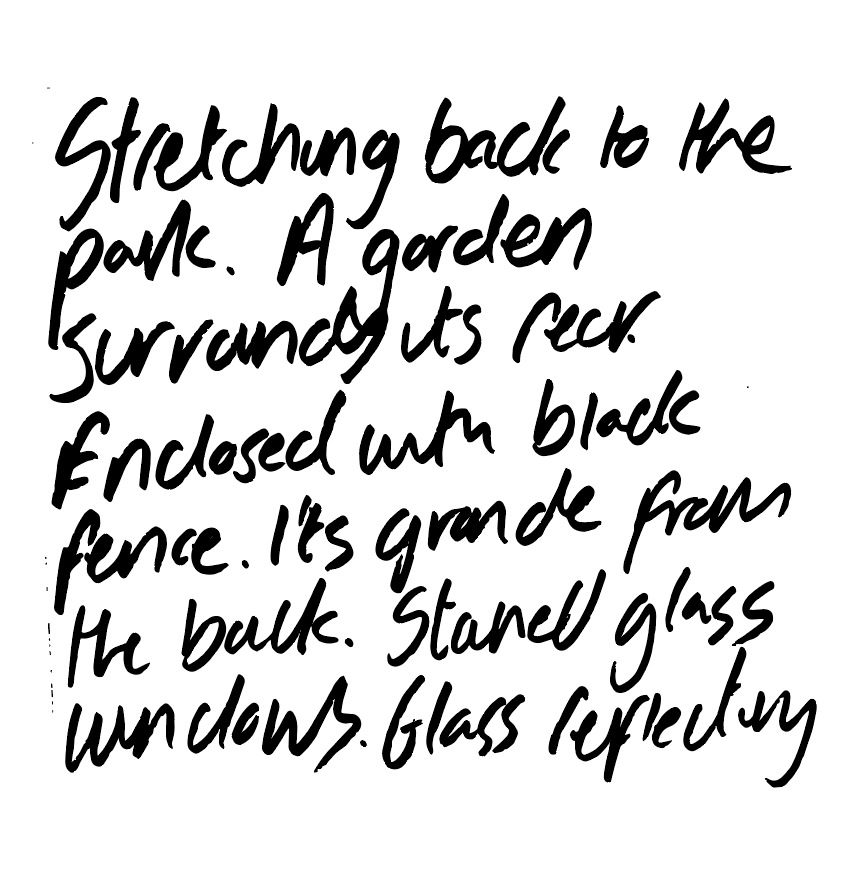 Stretching back to the
park. A garden
surrounds its rear.
Enclosed with black
fence. It's grande from
the back. Stained glass
windows. Glass reflecting